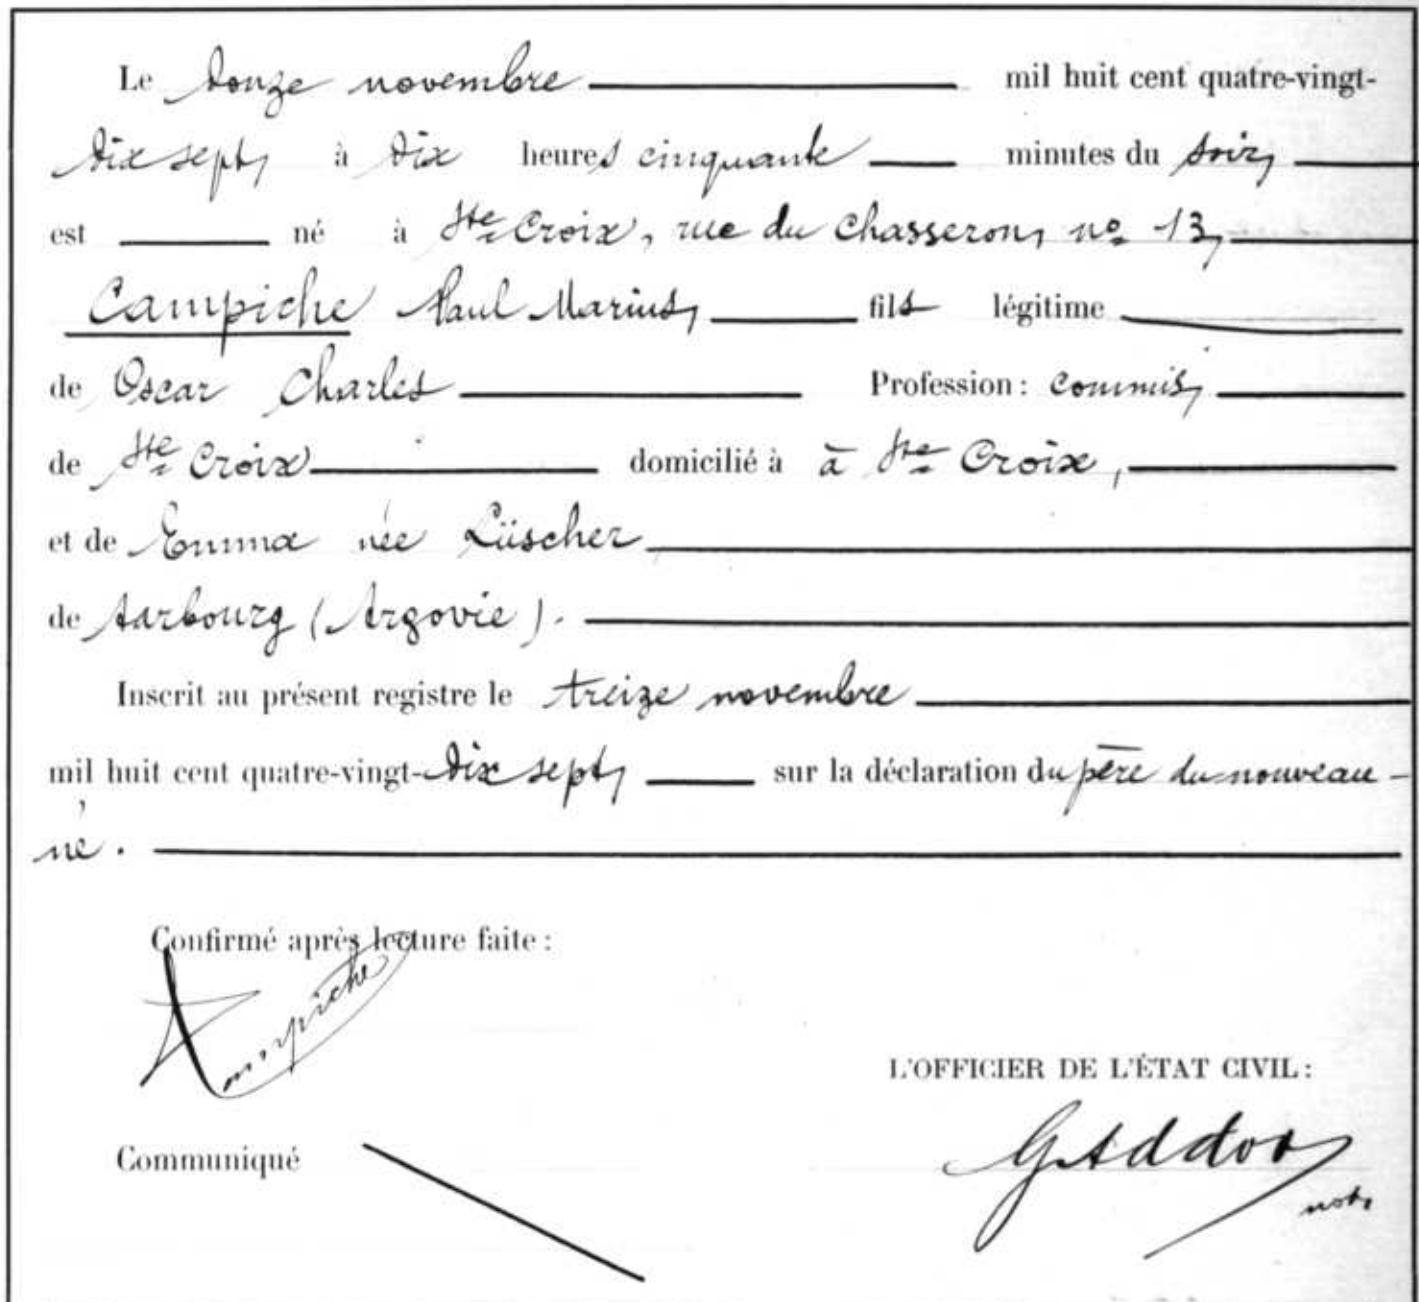 Le douze novembre mil huit cent quatre-vingt-
dix sept, à dix heures cinquante minutes du soir,
est né à Ste Croix, rue du Chasseron, no 13,
Campiche Paul Marius, fils légitime
de Oscar Charles Profession : commis,
de Ste Croix domicilié à à Ste Croix,
et de Emma née Lüscher
de Aarbourg (Argovie).
Inscrit au présent registre le treize novembre
mil huit cent quatre-vingt-dix sept, sur la déclaration du père du nouveau-
né.
Confirmé après lecture faite :
Campiche
L'OFFICIER DE L'ÉTAT CIVIL :
Communiqué